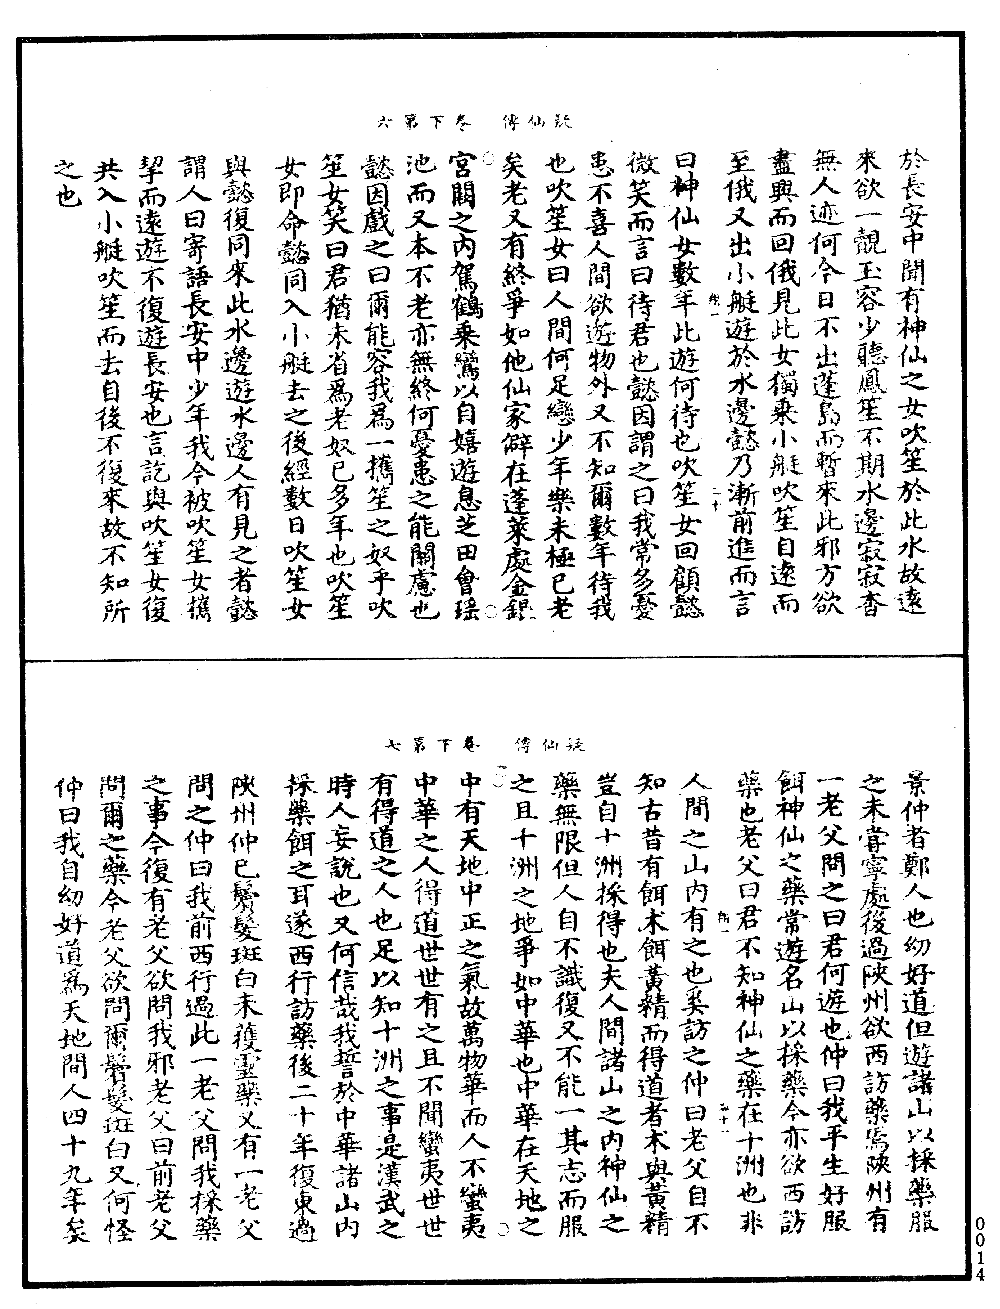 疑仙傳　卷下第六
於長安中聞有神仙之女吹笙於此水故遠
來欲一覩玉容少聽鳳笙不期水邊寂寂杳
無人迹何今日不出蓬島而暫來此邪方欲
盡興而回俄見此女獨乘小艇吹笙自遠而
至俄又出小艇遊於水邊懿乃漸前進而言
曰神仙女數年此遊何待也吹笙女回顧懿
微笑而言曰待君也懿因謂之曰我常多憂
恚不喜人間欲遊物外又不知爾數年待我
也吹笙女曰人間何足戀少年樂未極已老
矣老又有終爭如他仙家僻在蓬萊處金銀
宮闕之內駕鶴乘鸞以自嬉遊息芝田會瑶
池而又本不老亦無終何憂恚之能關慮也
懿因戲之曰爾能容我爲一攜笙之奴乎吹
笙女笑曰君猶未省爲老奴已多年也吹笙
女即命懿同入小艇去之後經數日吹笙女
與懿復同來此水邊遊水邊人有見之者懿
謂人曰寄語長安中少年我今被吹笙女攜
挈而遠遊不復遊長安也言訖與吹笙女復
共入小艇吹笙而去自後不復來故不知所
之也
疑仙傳　卷下第七
景仲者鄭人也幼好道但遊諸山以採藥服
之未甞寧處後過陝州欲西訪藥焉陝州有
一老父問之曰君何遊也仲曰我平生好服
餌神仙之藥常遊名山以採藥今亦欲西訪
藥也老父曰君不知神仙之藥在十洲也非
人間之山內有之也奚訪之仲曰老父自不
知古昔有餌术餌黃精而得道者术與黃精
豈自十洲採得也夫人間諸山之內神仙之
藥無限但人自不識復又不能一其志而服
之且十洲之地爭如中華也中華在天地之
中有天地中正之氣故萬物華而人不蠻夷
中華之人得道世世有之且不聞蠻夷世世
有得道之人也足以知十洲之事是漢武之
時人妄說也又何信哉我誓於中華諸山內
採藥餌之耳遂西行訪藥後二十年復東過
陝州仲已鬢髮斑白未獲靈藥又有一老父
問之仲曰我前西行過此一老父問我採藥
之事今復有老父欲問我邪老父曰前老父
問爾之藥今老父欲問爾鬢髮斑白又何怪
仲曰我自幼好道爲天地間人四十九年矣
0014